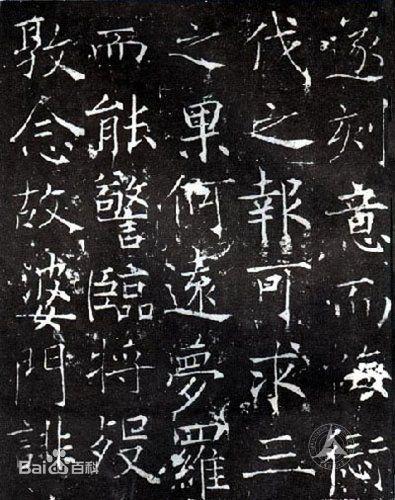 遂刻意而
伐之報可求三
之果何遠夢羅
而能警臨將殁
敦念故婆門誹
Bai百科